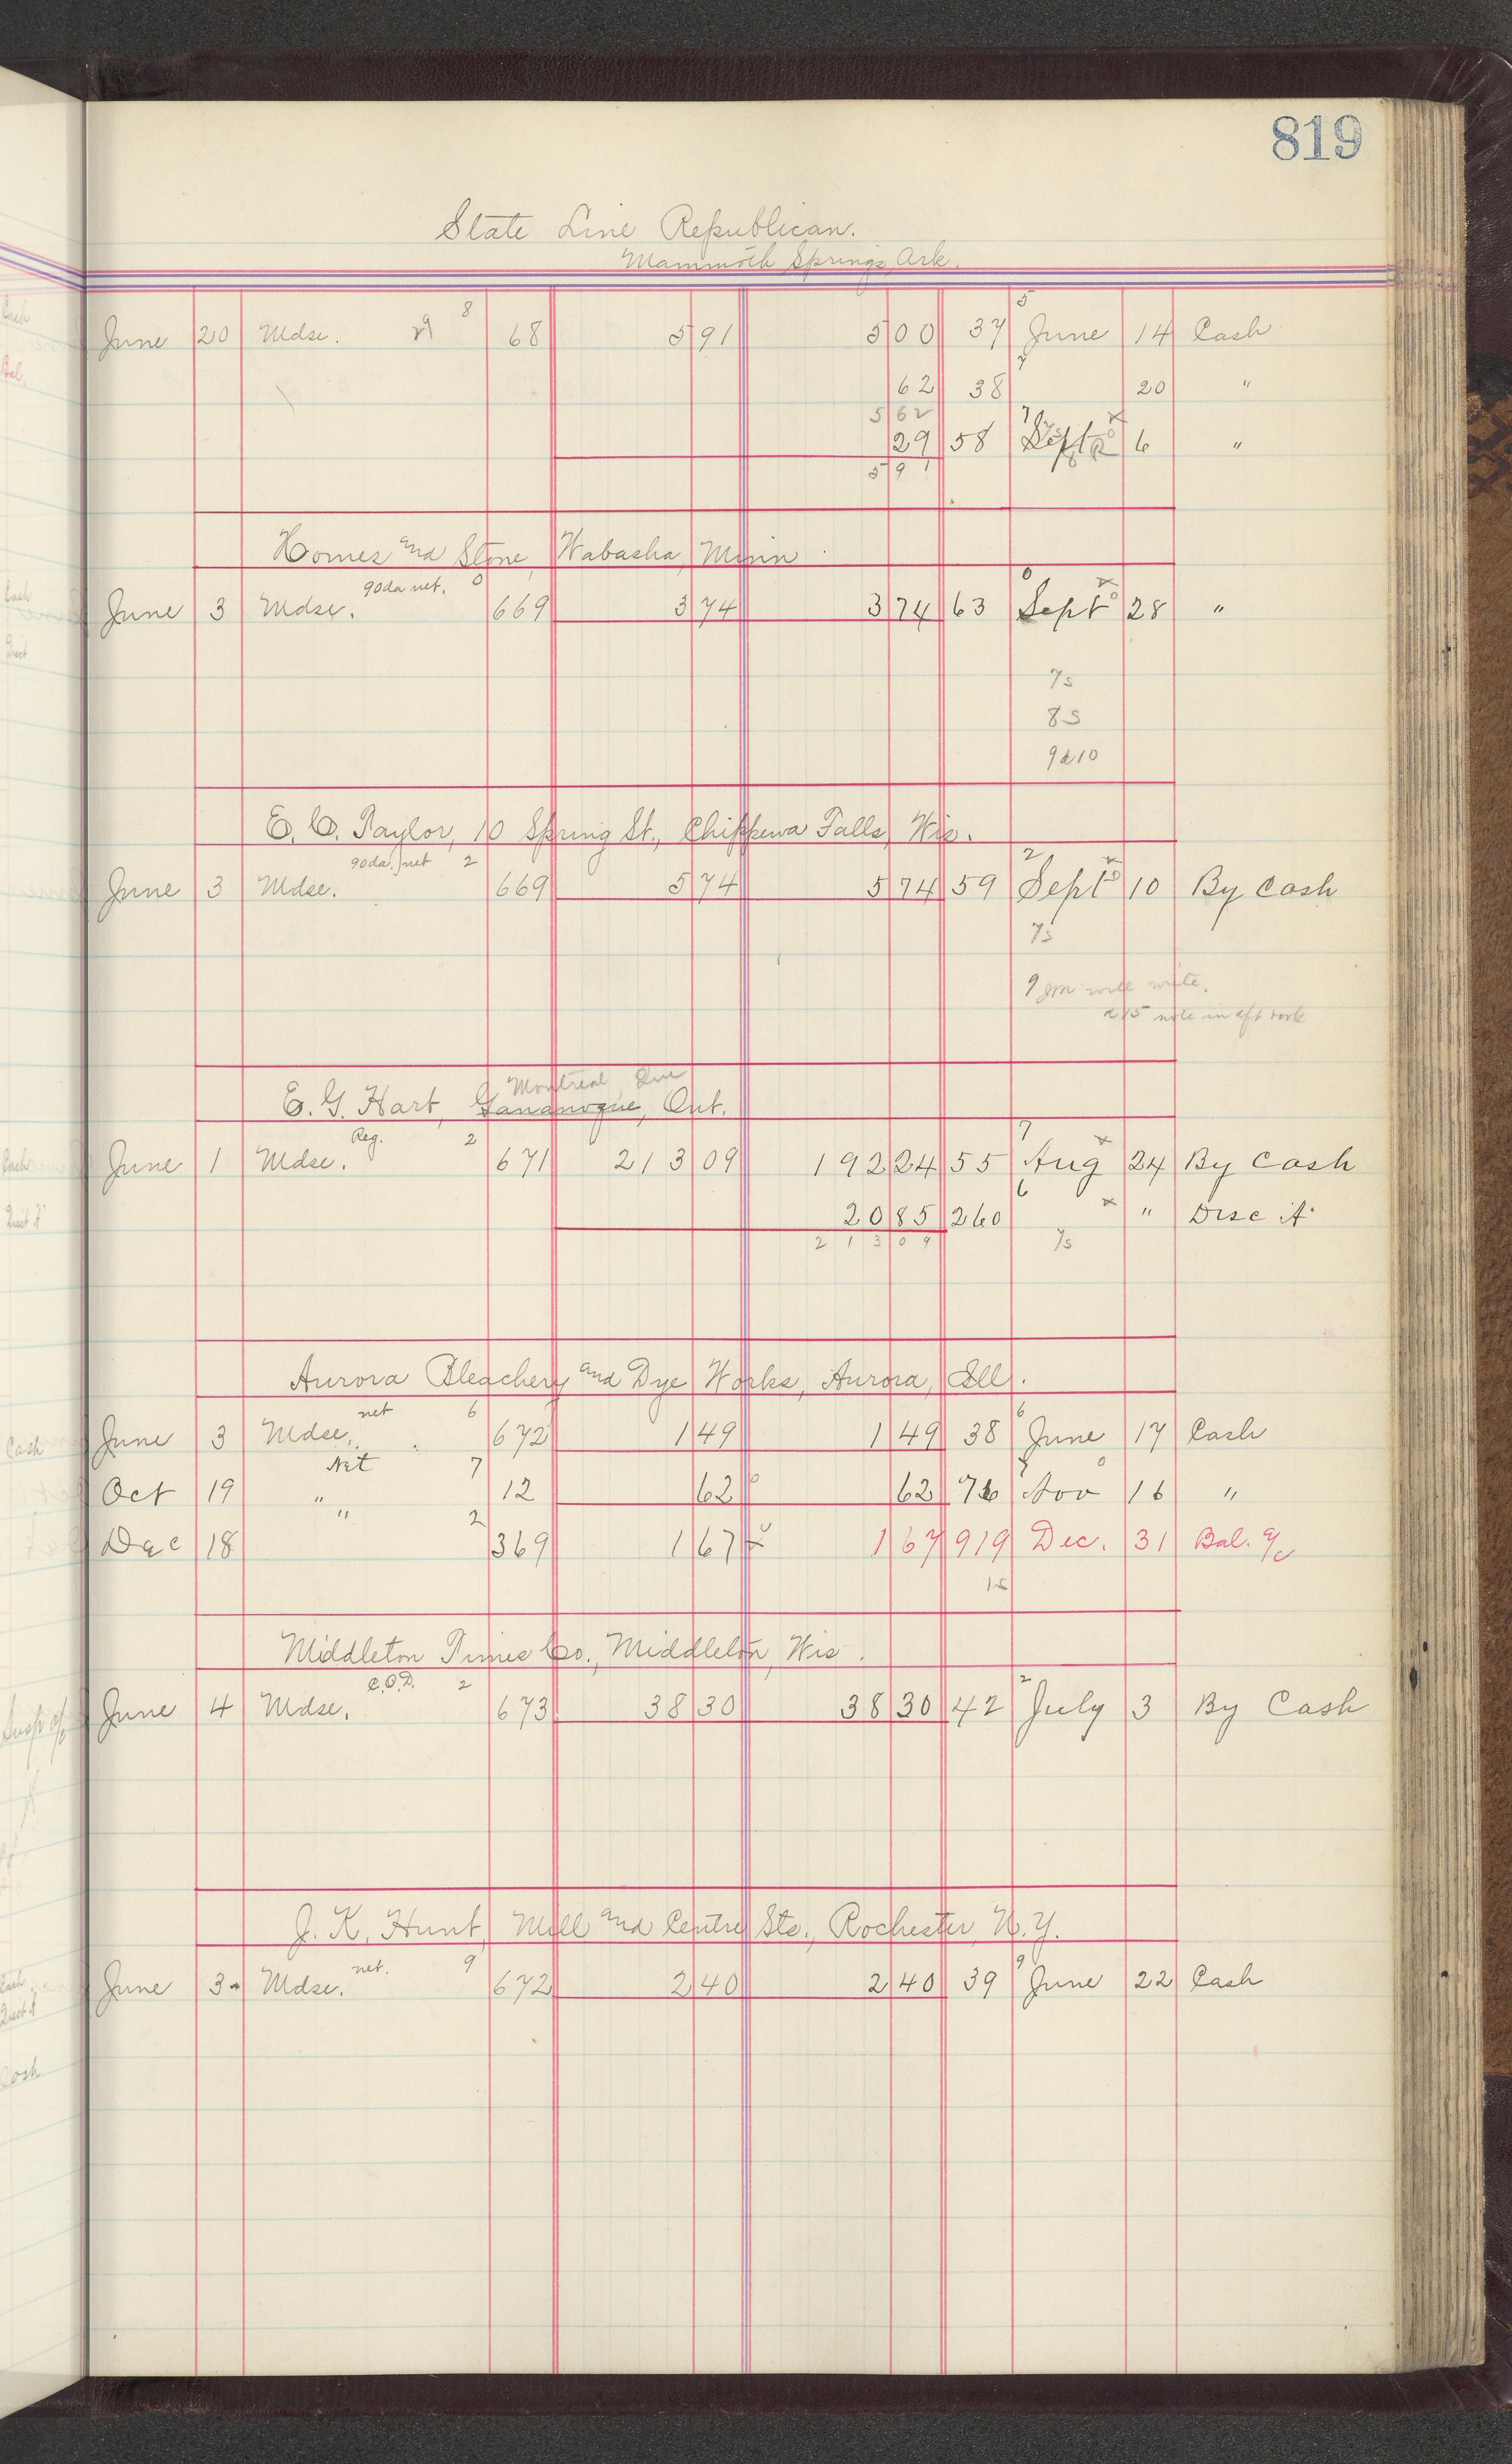 819
State Line Republican.
Mammoth Springs, Ark.
June 20 Mdse. 8 68 5 91 5 00 37 5 June 14 Cash
62 38 7 20 "
5 62
29 58 7 Sept 6 "
5 9 1
Homes and Stone, Wabasha, Minn
June 3 Mdse. 90 da net. 0 669 3 74 3 74 63 0 Sept 28 "
7s
8s
9d10
E. C. Taylor, 10 Spring St., Chippewa Falls, Wis.
June 3 Mdse. 90 da. net 2 669 5 74 5 74 59 2 Sept 10 By Cash
7s
9 will write.
d15 note in aft book
Montreal Que
E. G. Hart, Gananoque, Ont.
June 1 Mdse. Reg. 2 671 213 09 192 24 55 7 Aug 24 By Cash
20 85 260 6 " Disc
2 1 3 0 9 7s
Aurora Bleachery and Dye Works, Aurora, Ill.
June 3 Mdse. net 6 672 1 49 1 49 38 6 June 17 Cash
Oct 19 " Net 7 12 62 62 76 Nov 16 "
Dec 18 " 2 369 1 67 1 67 919 Dec. 31 Bal. a/c
Middleton Times Co., Middleton, Wis.
June 4 Mdse. C.O.D. 2 673 38 30 38 30 42 2 July 3 By Cash
J. K. Hunt, Mill and Centre Sts., Rochester, N.Y.
June 3 Mdse. net. 9 672 2 40 2 40 39 9 June 22 Cash